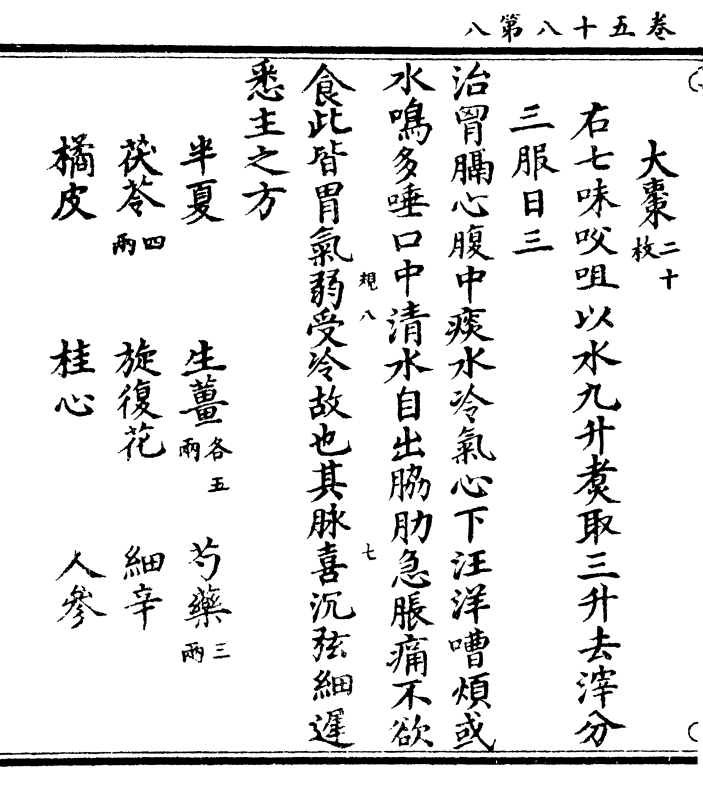 卷五十八第八
大棗二十枚
右七味㕮咀以水九升煑取三升去滓分
三服日三
治胷膈心腹中痰水冷氣心下汪洋嘈煩或
水鳴多唾口中清水自出脇肋急脹痛不欲
食此皆胃氣弱受冷故也其脉喜沉弦細遲
規八
七
悉主之方
半夏 生薑各五兩 芍藥三兩
茯苓四兩 旋復花 細辛
橘皮 桂心 人參